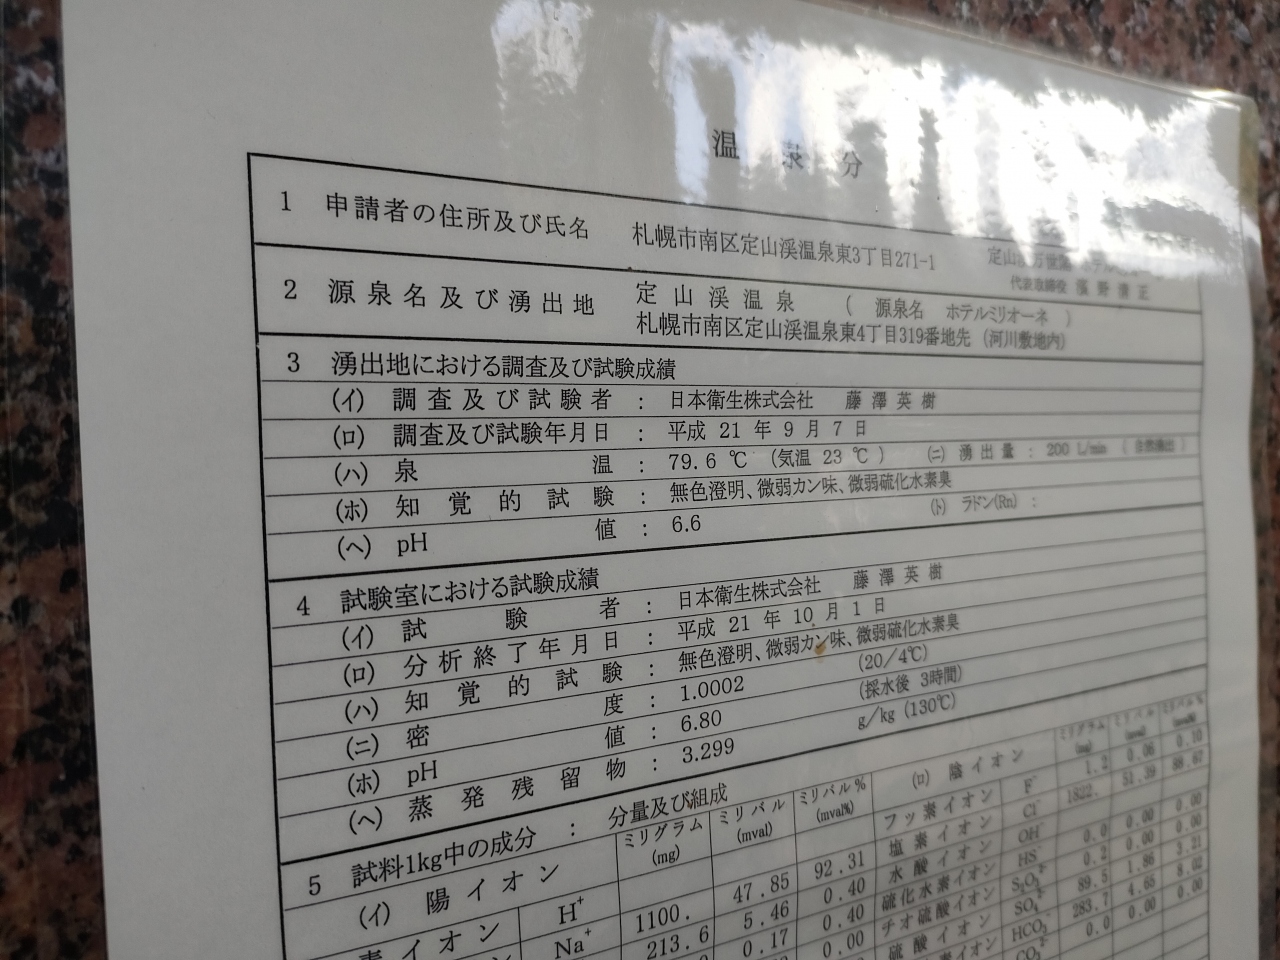 温泉分
1 申請者の住所及び氏名 札幌市南区定山渓温泉東3丁目271-1 定山渓万世閣 ホテル
代表取締役 濱野清正
2 源泉名及び湧出地 定山渓温泉 ( 源泉名 ホテルミリオーネ )
札幌市南区定山渓温泉東4丁目319番地先 (河川敷地内)
3 湧出地における調査及び試験成績
(イ) 調査及び試験者 : 日本衛生株式会社 藤澤英樹
(ロ) 調査及び試験年月日 : 平成 21 年 9 月 7 日
(ハ) 泉温 : 79.6 ℃ (気温 23 ℃ ) (ニ) 湧出量 : 200 L/min ( 自然湧出 )
(ホ) 知覚的試験 : 無色澄明、微弱カン味、微弱硫化水素臭
(ヘ) pH値 : 6.6 (ト) ラドン(Rn) :
4 試験室における試験成績
(イ) 試験者 : 日本衛生株式会社 藤澤英樹
(ロ) 分析終了年月日 : 平成 21 年 10 月 1 日
(ハ) 知覚的試験 : 無色澄明、微弱カン味、微弱硫化水素臭
(ニ) 密度 : 1.0002 (20/4℃)
(ホ) pH値 : 6.80 (採水後 3時間)
(ヘ) 蒸発残留物 : 3.299 g/kg (130℃)
5 試料1kg中の成分 : 分量及び組成
(イ) 陽イオン ミリグラム (mg) ミリバル (mval) ミリバル% (mval%) (ロ) 陰イオン ミリグラム (mg) ミリバル (mval) ミリバル% (mval%)
素イオン H⁺
Na⁺ 1100. 47.85 92.31
213.6 5.46 0.40
0.17 0.40
0.00
フッ素イオン F⁻ 1.2 0.06 0.10
塩素イオン Cl⁻ 1822. 51.39 88.67
水酸イオン OH⁻
硫化水素イオン HS⁻ 0.0 0.00 0.00
チオ硫酸イオン S₂O₃²⁻ 0.2 0.00 0.00
硫酸イオン SO₄²⁻ 89.5 1.86 3.21
素イオン HCO₃⁻ 283.7 4.65 8.02
CO₃²⁻ 0.0 0.00 0.00